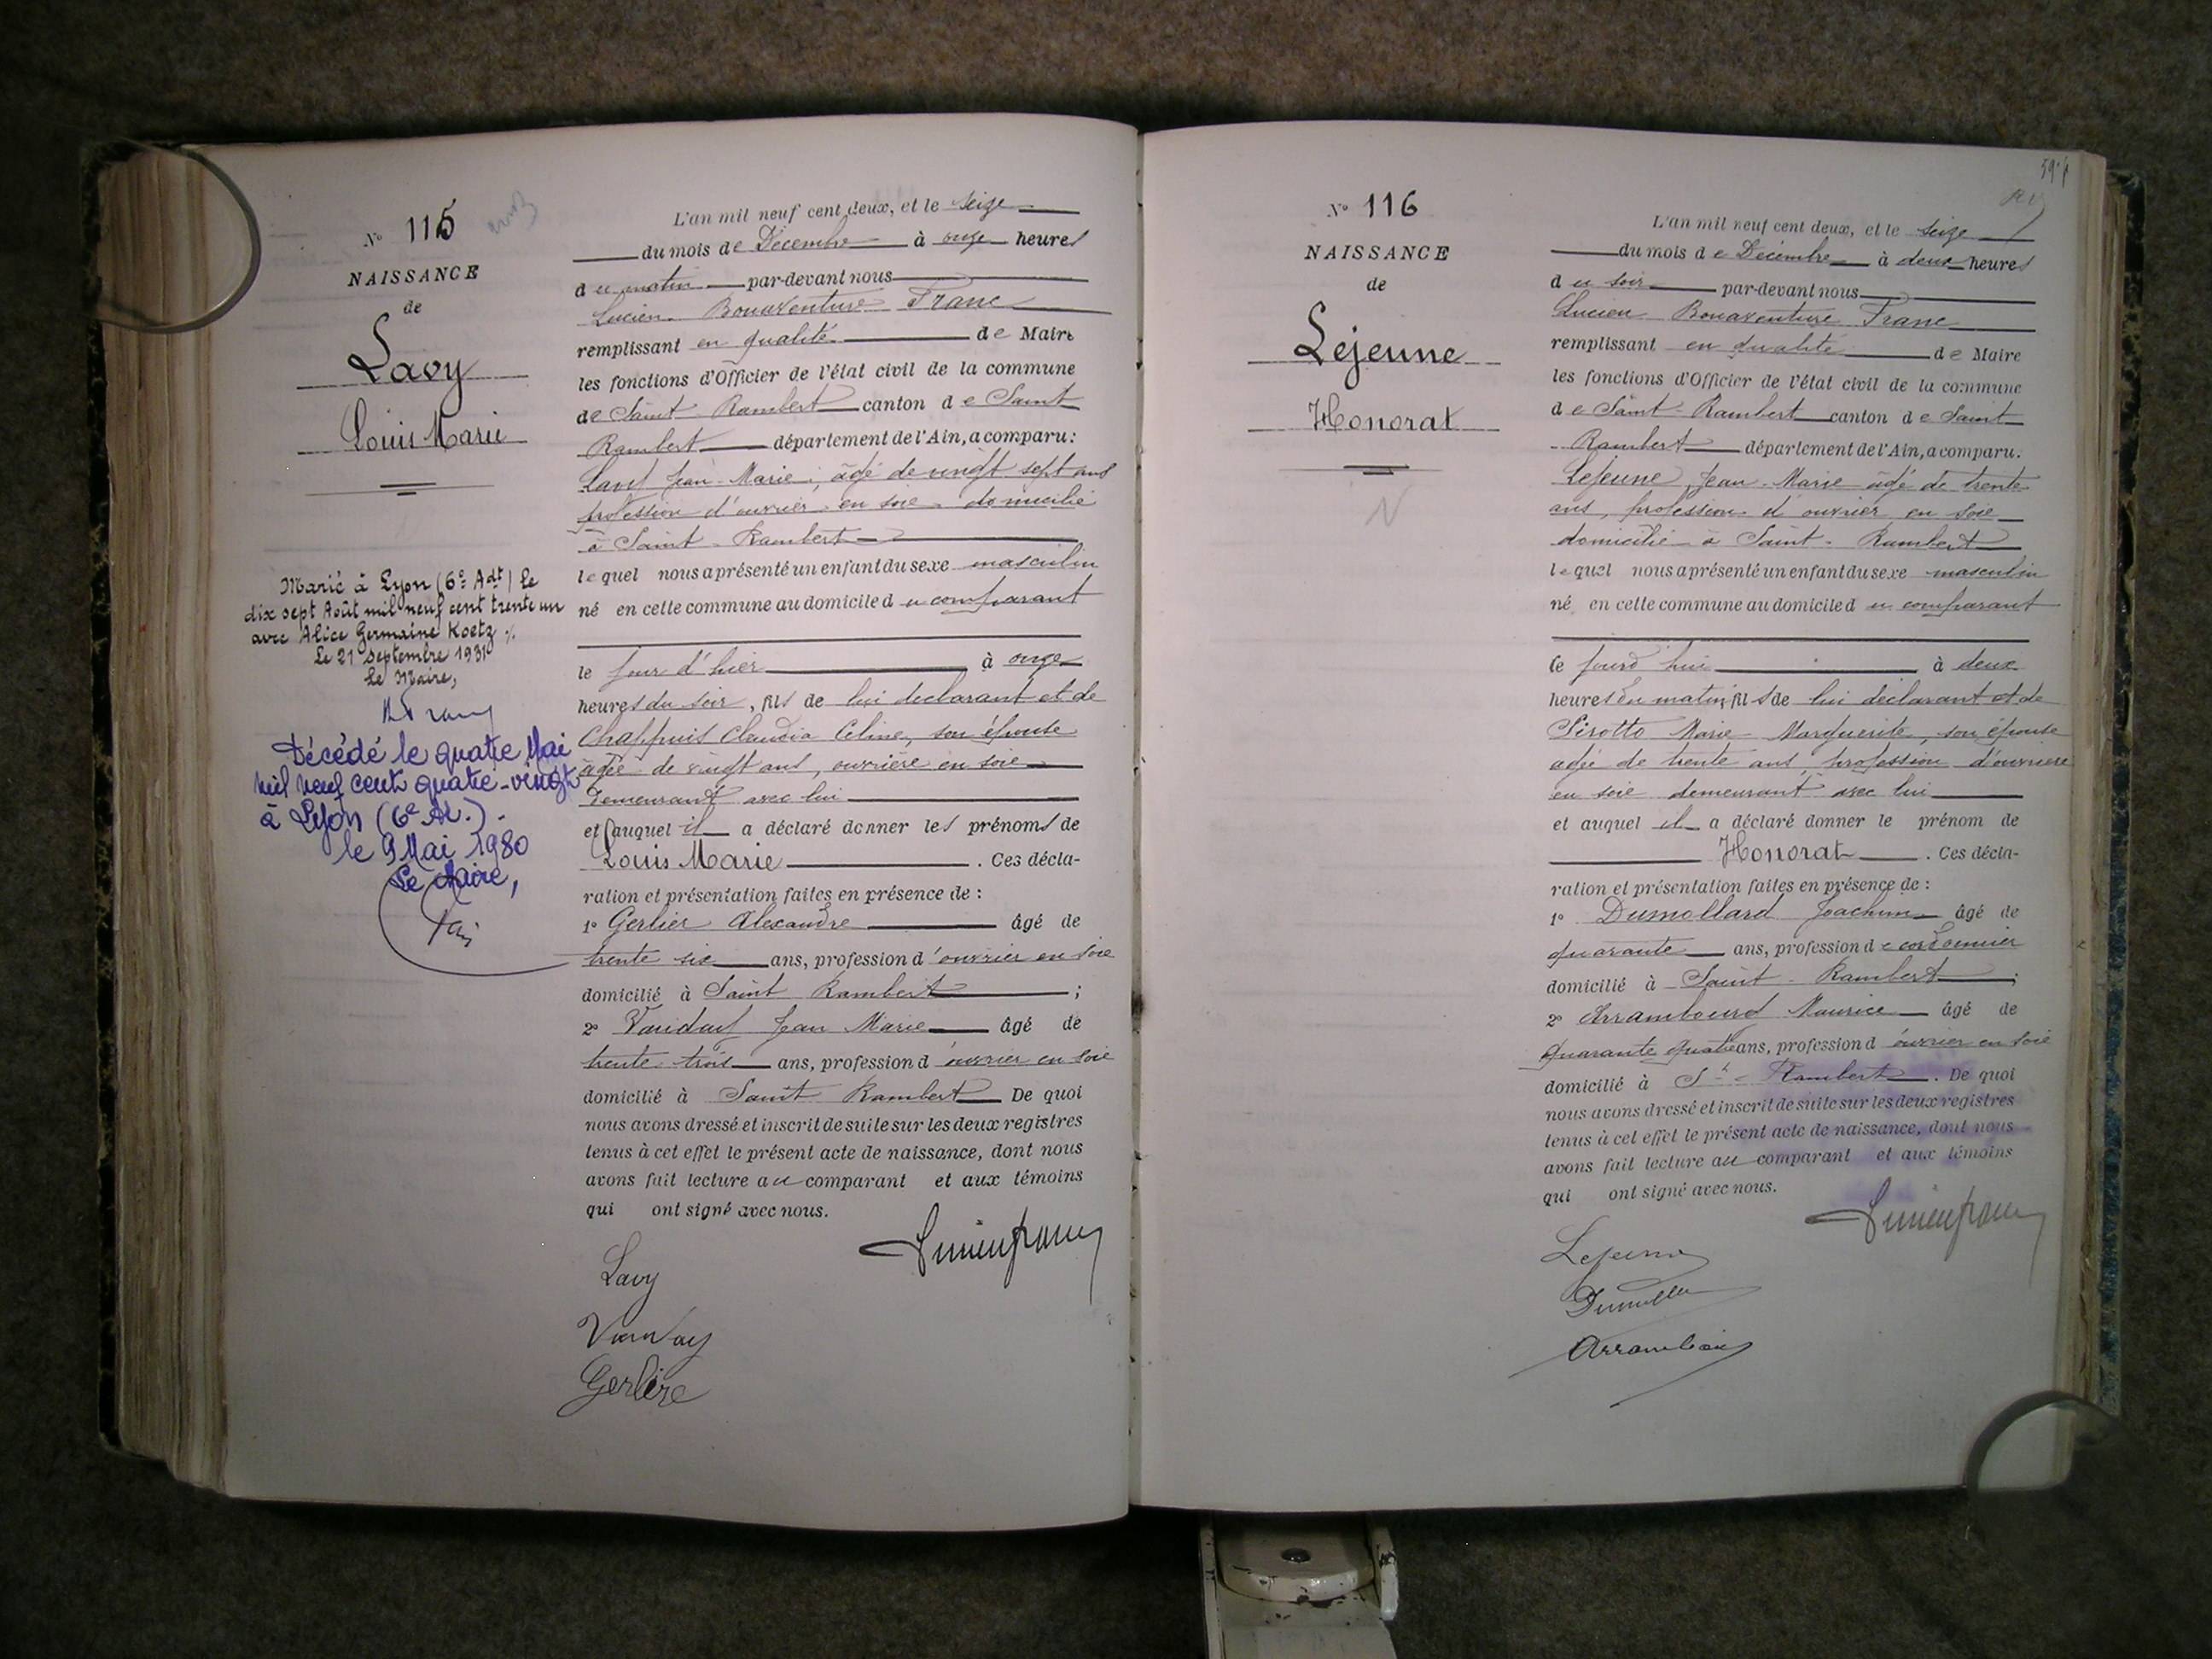 N° 115
NAISSANCE
de
Lavy
Louis Marie
Marié à Lyon (6e Adt) le
dix sept Août mil neuf cent trente un
avec Alice Germaine Koetz ./.
Le 21 septembre 1931
Le Maire,
Décédé le quatre Mai
mil neuf cent quatre-vingt
à Lyon (6e Ar.).
le 9 Mai 1980
Le Maire,
L'an mil neuf cent deux, et le seize
du mois de Décembre à onze heures
du matin par-devant nous
Lucien Bonaventure Franc
remplissant en qualité de Maire
les fonctions d'Officier de l'état civil de la commune
de Saint Rambert canton de Saint
Rambert département de l'Ain, a comparu :
Lavy Jean-Marie, âgé de vingt sept ans
profession d'ouvrier en soie domicilié
à Saint-Rambert
lequel nous a présenté un enfant du sexe masculin
né en cette commune au domicile du comparant
le jour d'hier à onze
heures du soir, fils de lui déclarant et de
Chappuis Claudia Céline, son épouse
âgée de vingt ans, ouvrière en soie
demeurant avec lui
et auquel il a déclaré donner les prénoms de
Louis Marie . Ces décla-
ration et présentation faites en présence de :
1° Gerlier Alexandre âgé de
trente six ans, profession d'ouvrier en soie
domicilié à Saint Rambert ;
2° Jean Marie âgé de
trente trois ans, profession d'ouvrier en soie
domicilié à Saint Rambert De quoi
nous avons dressé et inscrit de suite sur les deux registres
tenus à cet effet le présent acte de naissance, dont nous
avons fait lecture au comparant et aux témoins
qui ont signé avec nous.
Lucien franc
Lavy
N° 116
NAISSANCE
de
Lejeune
Honorat
N
L'an mil neuf cent deux, et le seize
du mois de Décembre à deux heures
du soir par-devant nous
Lucien Bonaventure Franc
remplissant en qualité de Maire
les fonctions d'Officier de l'état civil de la commune
de Saint-Rambert canton de Saint
Rambert département de l'Ain, a comparu :
Lejeune, Jean-Marie âgé de trente
ans, profession d'ouvrier en soie
domicilié à Saint-Rambert
lequel nous a présenté un enfant du sexe masculin
né en cette commune au domicile du comparant
ce jourd'hui à deux
heures du matin, fils de lui déclarant et de
Marie Marguerite, son épouse
agée de trente ans, profession d'ouvrière
en soie demeurant avec lui
et auquel il a déclaré donner le prénom de
Honorat . Ces décla-
ration et présentation faites en présence de :
1° Dumollard Joachim âgé de
quarante ans, profession de cordonnier
domicilié à Saint-Rambert ;
2° Arrambourd Maurice âgé de
quarante quatre ans, profession d'ouvrier en soie
domicilié à St-Rambert . De quoi
nous avons dressé et inscrit de suite sur les deux registres
tenus à cet effet le présent acte de naissance, dont nous
avons fait lecture au comparant et aux témoins
qui ont signé avec nous.
Lucien franc
Lejeune